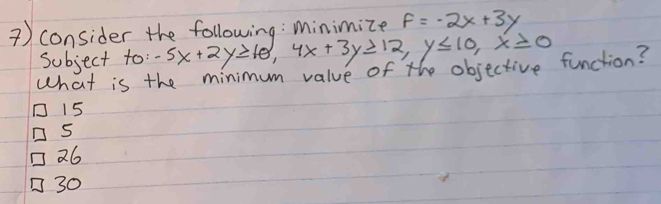 7) Consider the following: Minimize F = -2x + 3y
Subject to: -5x + 2y ≥ 10, 4x + 3y ≥ 12, y ≤ 10, x ≥ 0
What is the minimum value of the objective function?
□ 15
□ 5
□ 26
□ 30